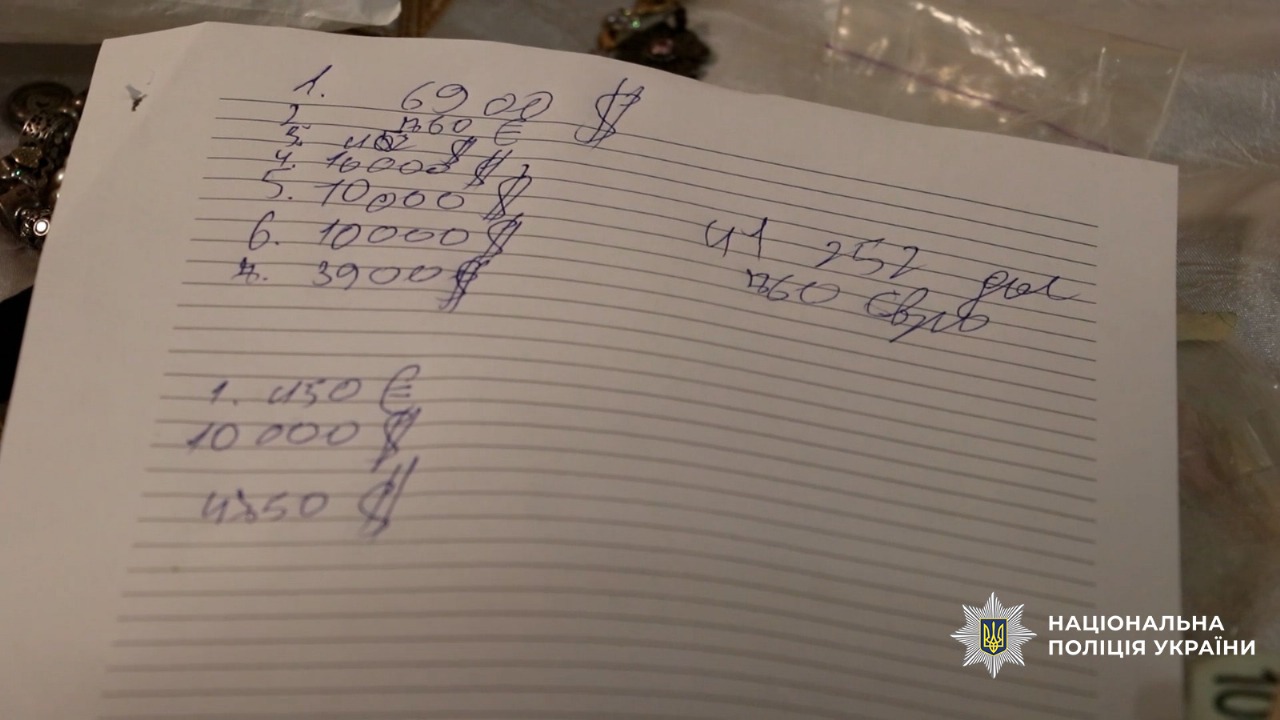 1. 6900 $
2. 760 €
3. 452 $
4. 10000 $
5. 10000 $
6. 10000 $
7. 3900 $
41 252 дол
760 Євро
1. 450 €
10 000 $
4750 $
НАЦІОНАЛЬНА
ПОЛІЦІЯ УКРАЇНИ
10